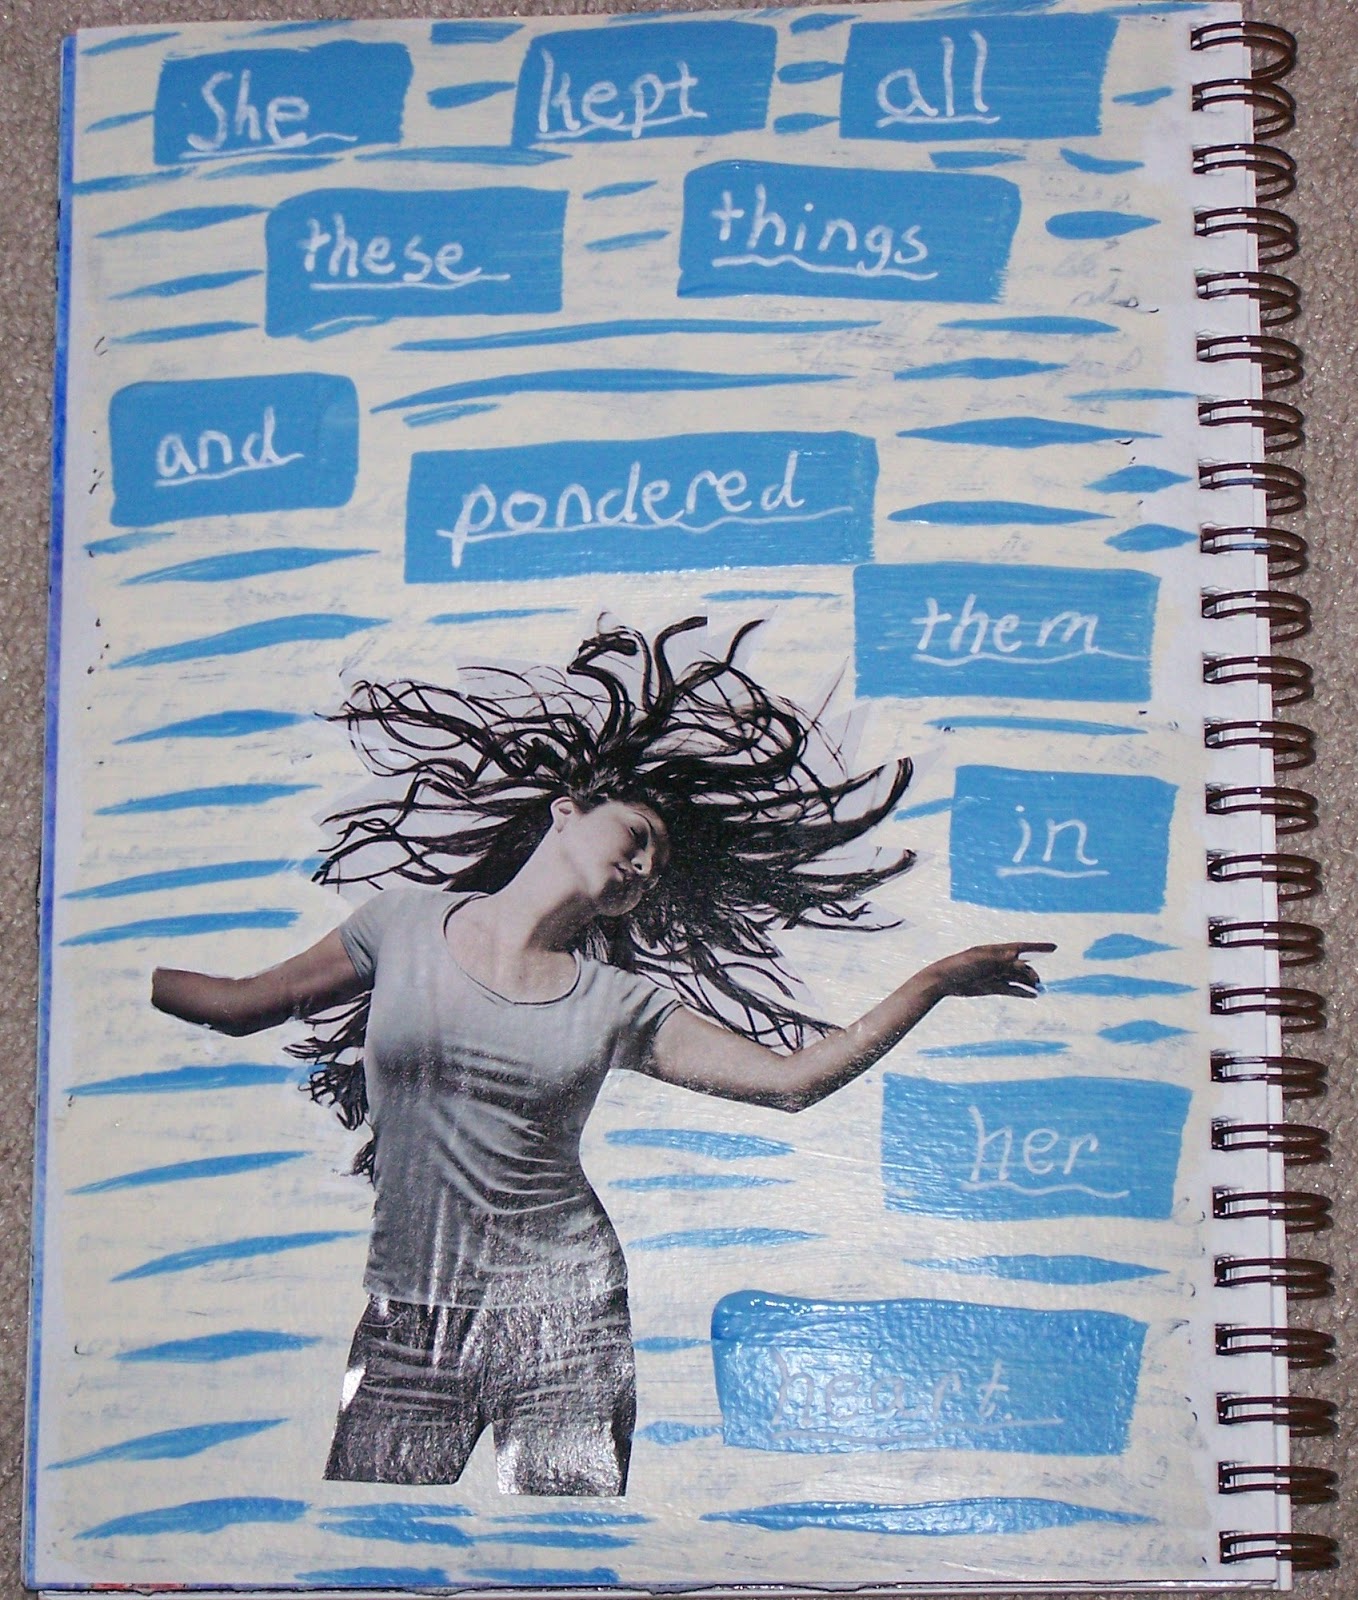 She kept all
these things
and pondered
them
in
her
heart.